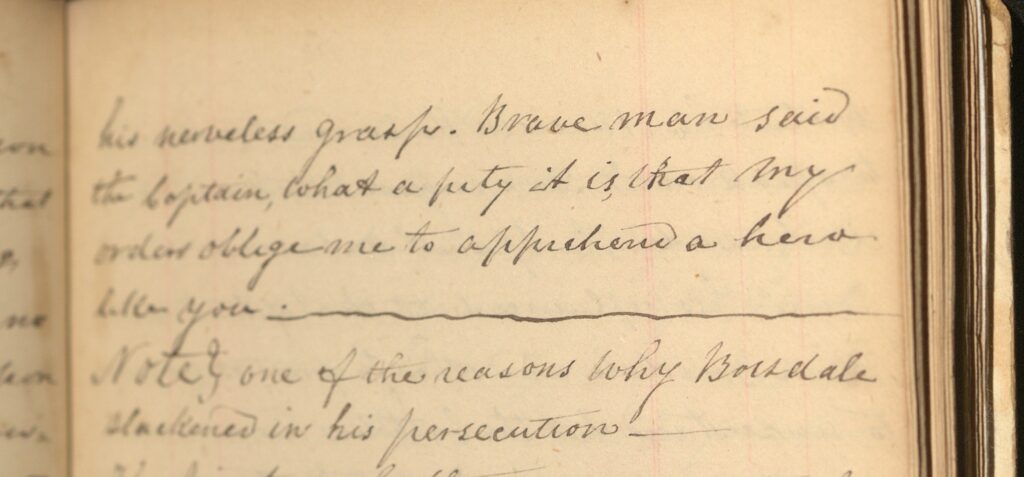 his nerveless grasp. Brave man said
the Captain, what a pity it is, that my
orders oblige me to apprehend a hero
like you.
Note, one of the reasons why Boisdale
slackened in his persecution